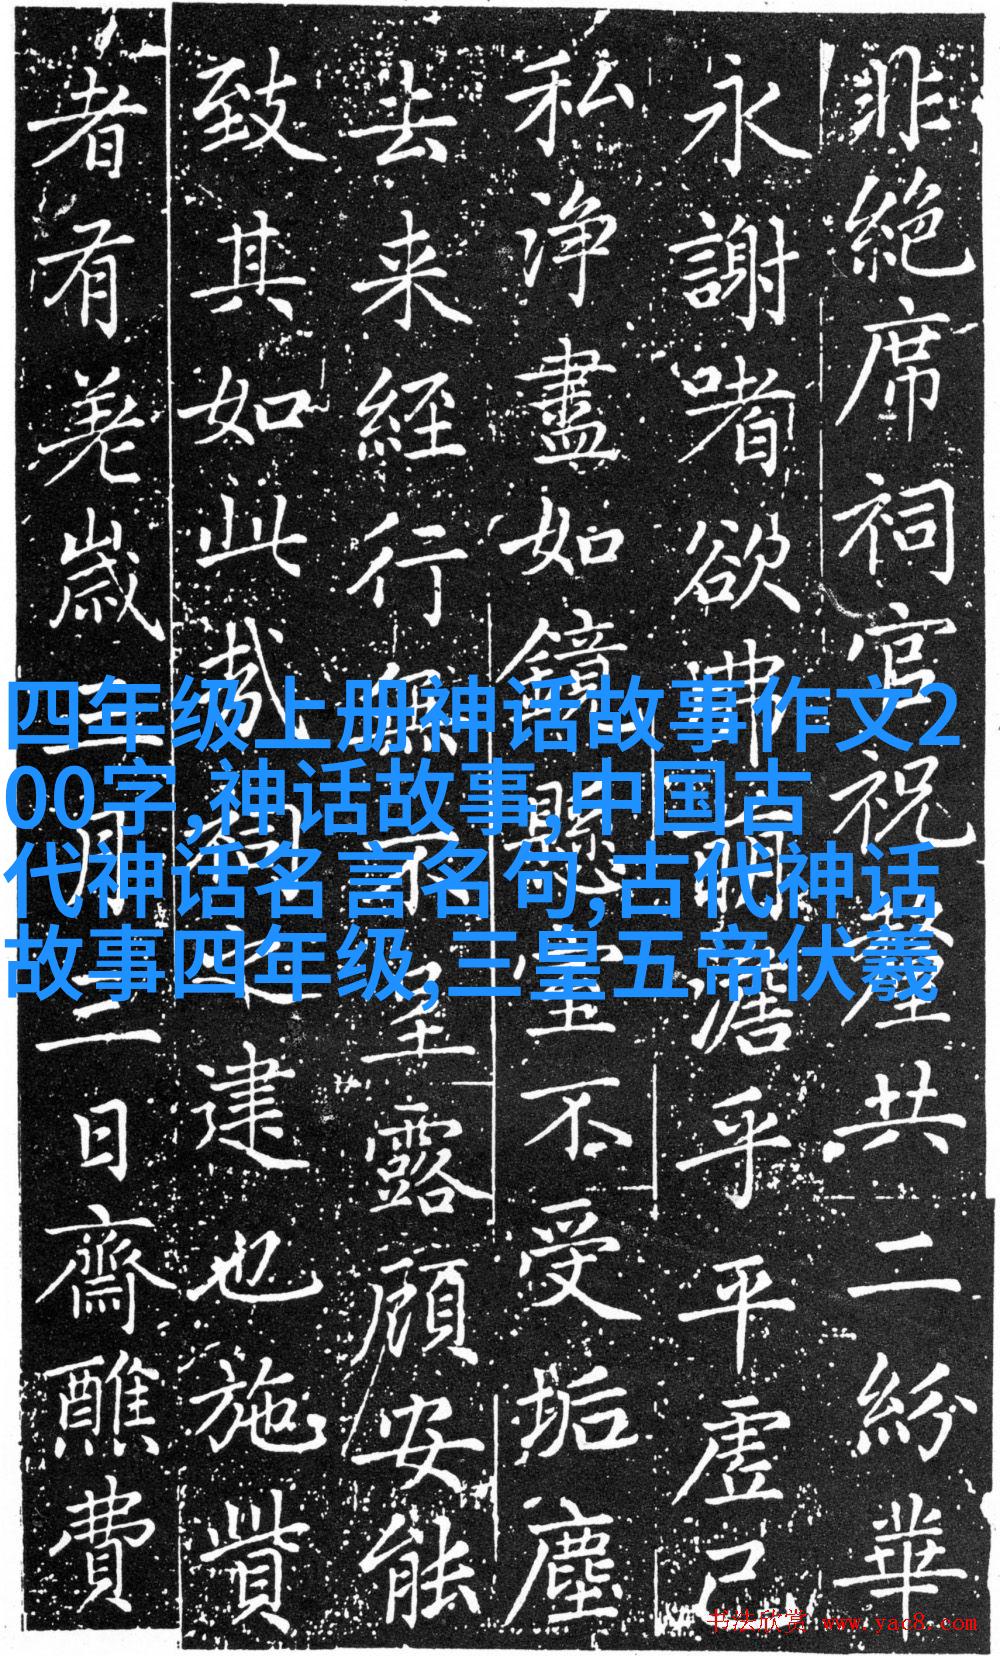 非絶席祠官祝釐共二紛華
永謝嗜欲弗萌澹乎平虚己
私浄盡如鏡懸空不受垢塵
去来經行無不呈露顧安能
致其如此哉建也施貲
者有差歳三月三日齋醮費
四年级上册神话故事作文2
00字,神话故事,中国古
代神话名言名句,古代神话
故事四年级,三皇五帝伏羲
书法欣赏 www.yac8.com